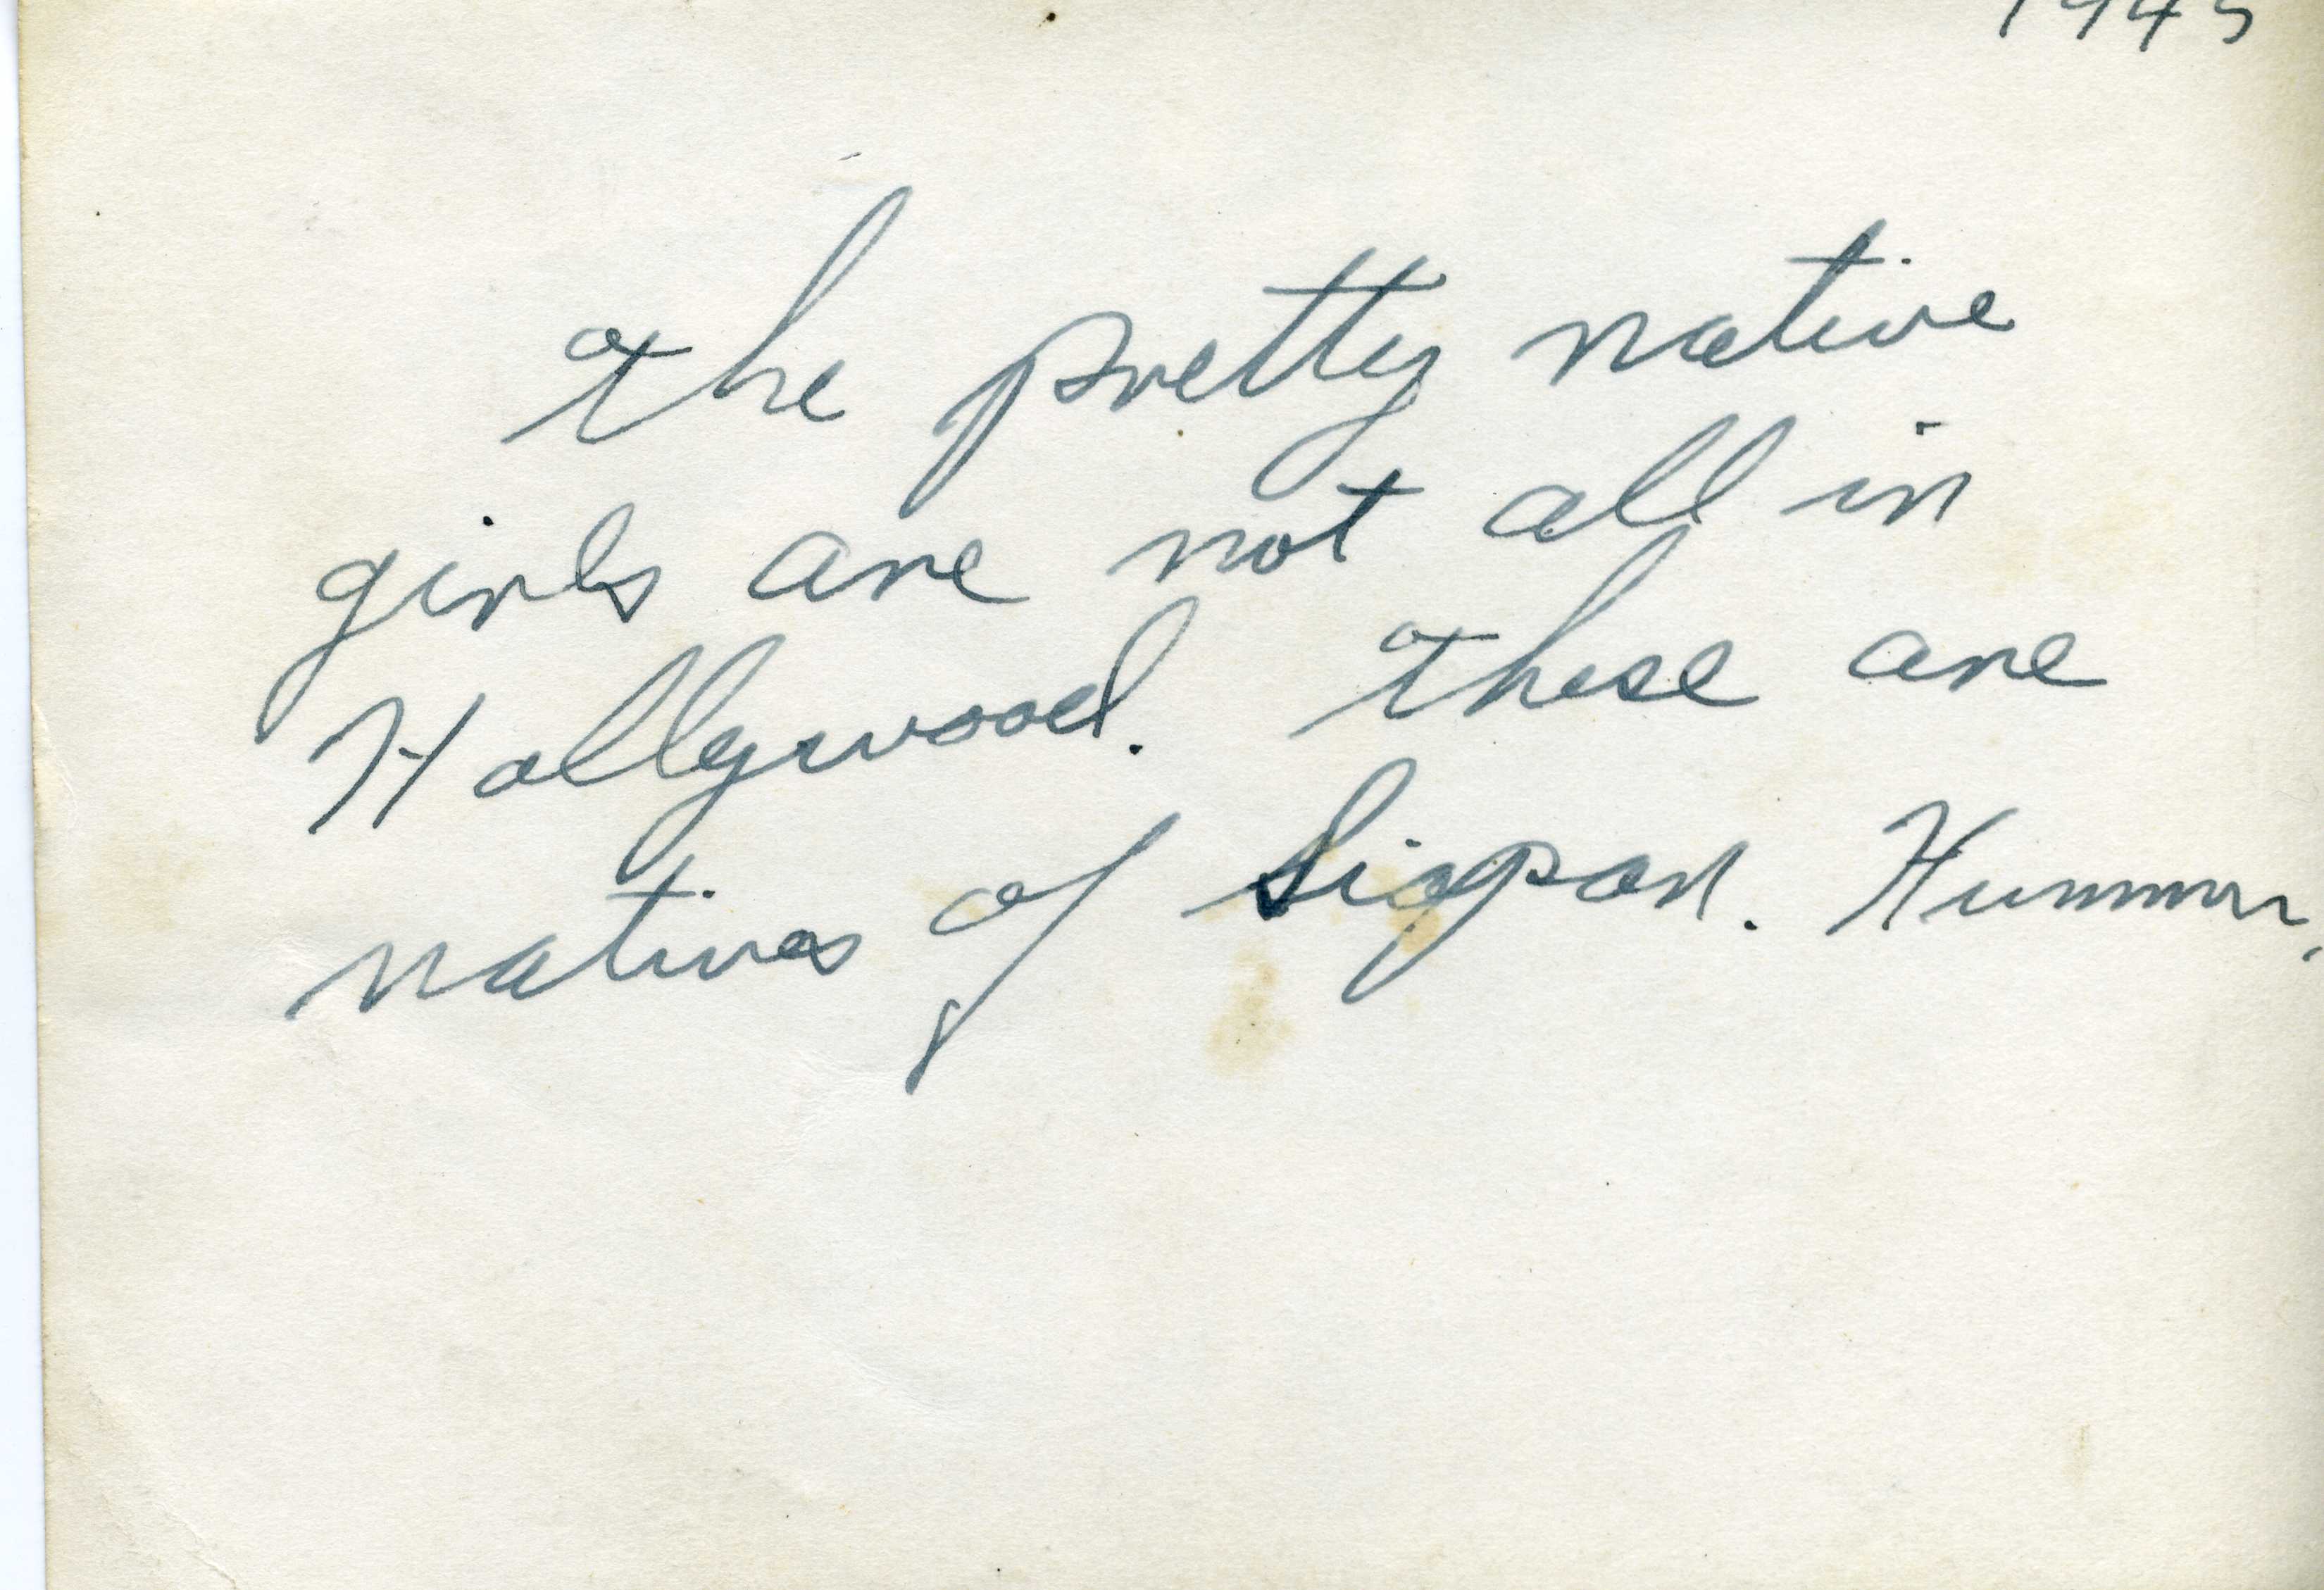 1945
The pretty native
girls are not all in
Hollywood. These are
natives of Siapan. Hummm,